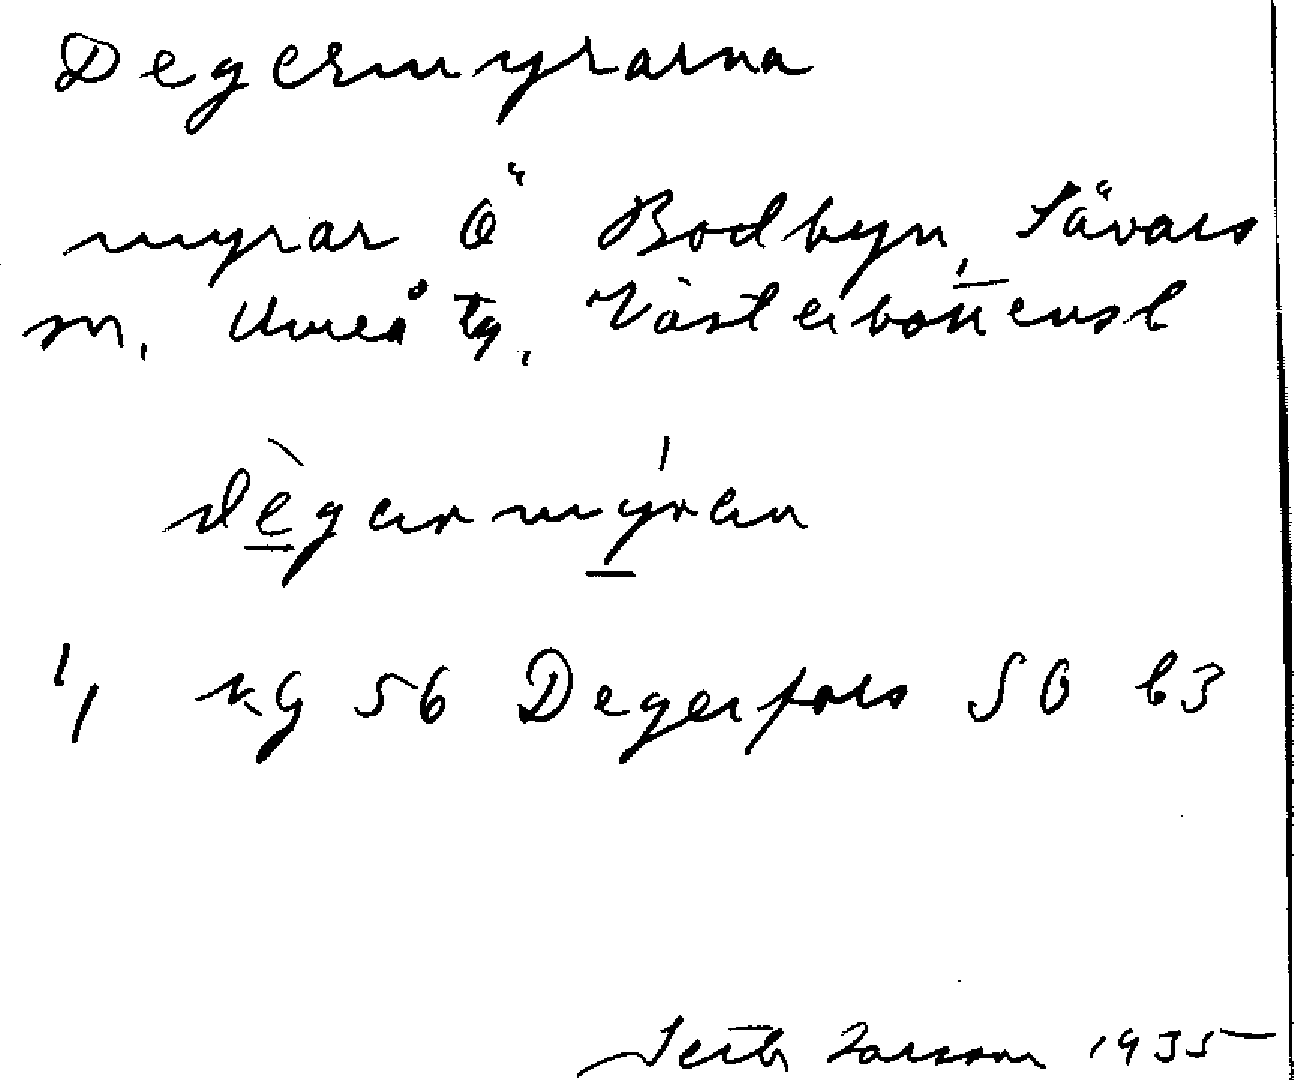 Degermyrarna
myrar Ö Bodbyn, Sävars
sn, Umeå tg, Västerbottensl
dègermýren
1/1 kg 56 Degerfors SO b3
Seth Larsson 1935